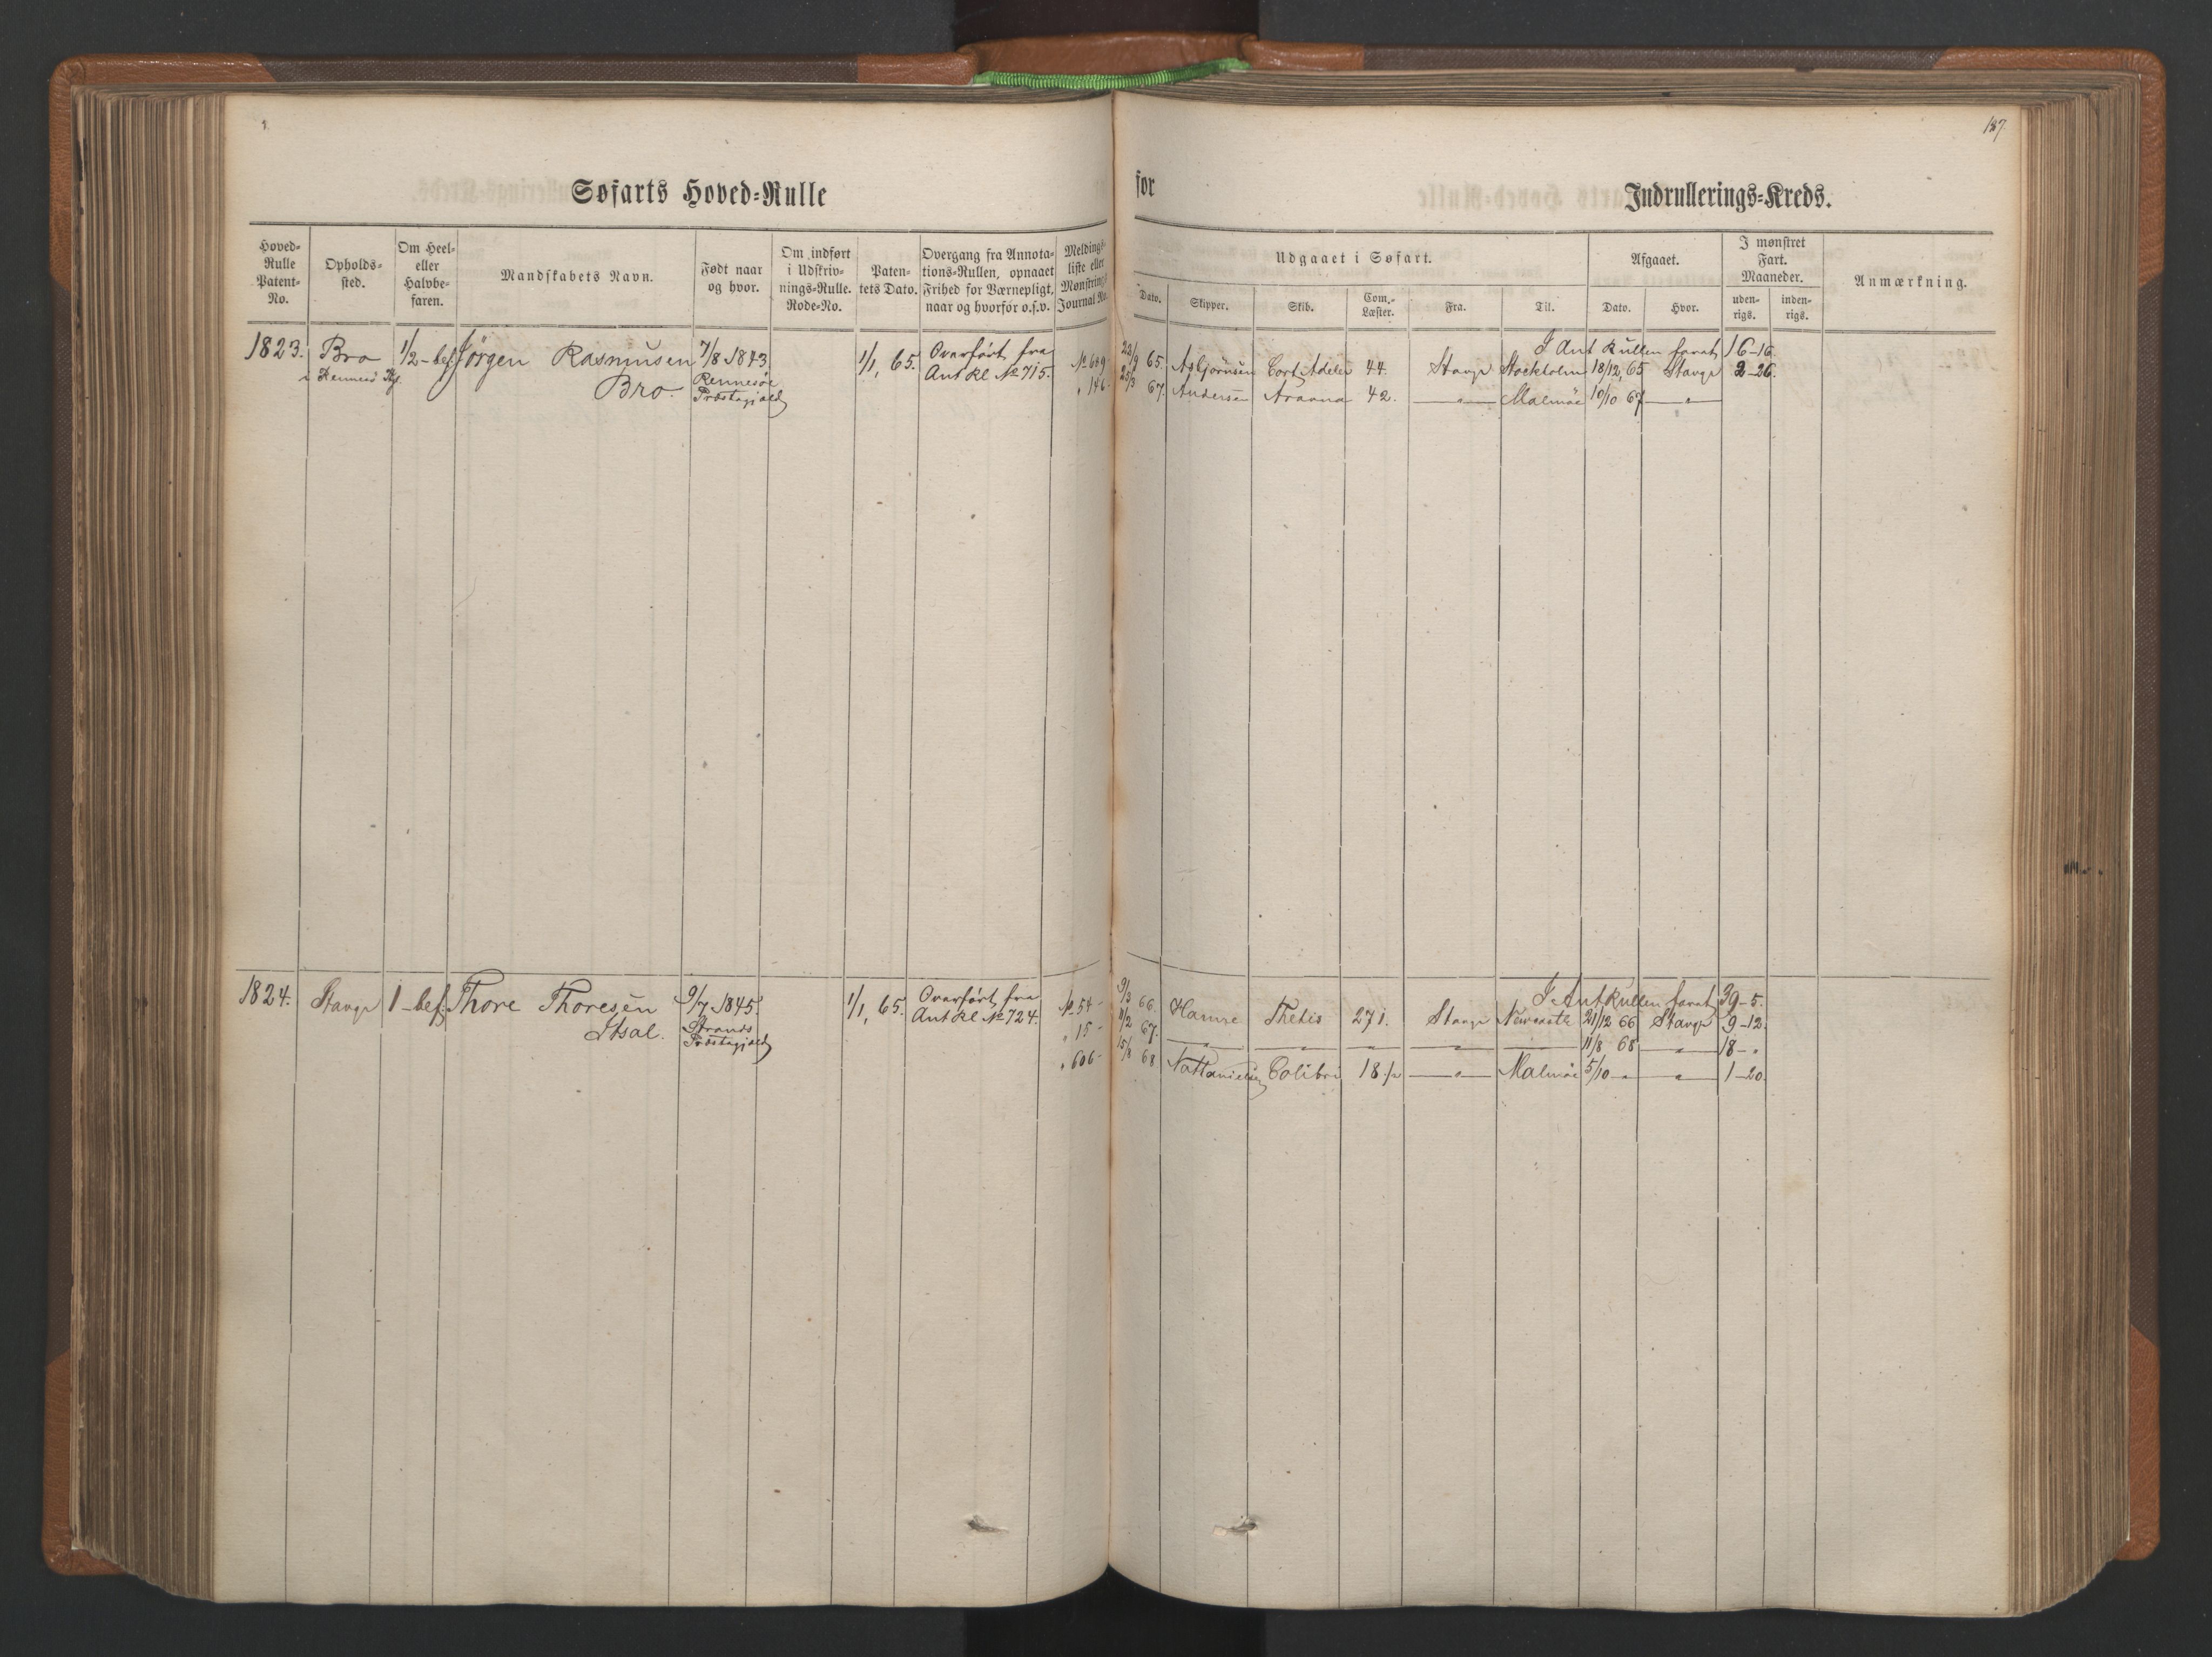 187
Søfarts Hoved-Rulle for Indrullerings-Kreds.
Hoved-Rulle Patent-No.
Opholds-sted.
Om Heel- eller Halvbe-faren.
Mandskabets Navn.
Født naar og hvor.
Om indført i Udskriv-nings-Rulle. Rode-No.
Paten-tets Dato.
Overgang fra Annota-tions-Rullen, opnaaet Frihed for Værnepligt, naar og hvorfor o.s.v.
Meldings-liste eller Mønstrings Journal No.
Udgaaet i Søfart.
Dato.
Skipper.
Skib.
Com.-Læster.
Fra.
Til.
Afgaaet.
Dato.
Hvor.
I mønstret Fart. Maaneder.
uden-rigs.
inden-rigs.
Anmærkning.
I Ant Rullen farat 16-16
1823. Bro 1/2-bef. Jörgen Rasmusen 7/8 1843 1/1, 65. Overfört fra No 689 22/9 65. Asbjörnsen Cort Adeler 44. Stavgr Stockholm 18/12, 65 Stavgr 2-26.
i Rennesö Rennesöe Ant Rl No 715.
Bro. Præstegjæld " 146 67. Andersen 42. " Malmöe 10/10 67 "
I Ant Rullen farat 39-5.
1824. Stavgr 1-bef. Thore Thoresen 9/7 1845. 1/1, 65. Overfört fra No 54- 9/3 66. Hamre Thetis 271. Stavgr Newcastle 21/12 66 Stavgr 9-12.
Strands Ant Rl No 724. " 15- 67. " " " " 11/8 68 " 18- "
Præstegjæld " 606- 15/8 68 Nathanielsen Colibri 18 1/2 " Malmöe 5/10 " " 1-20.